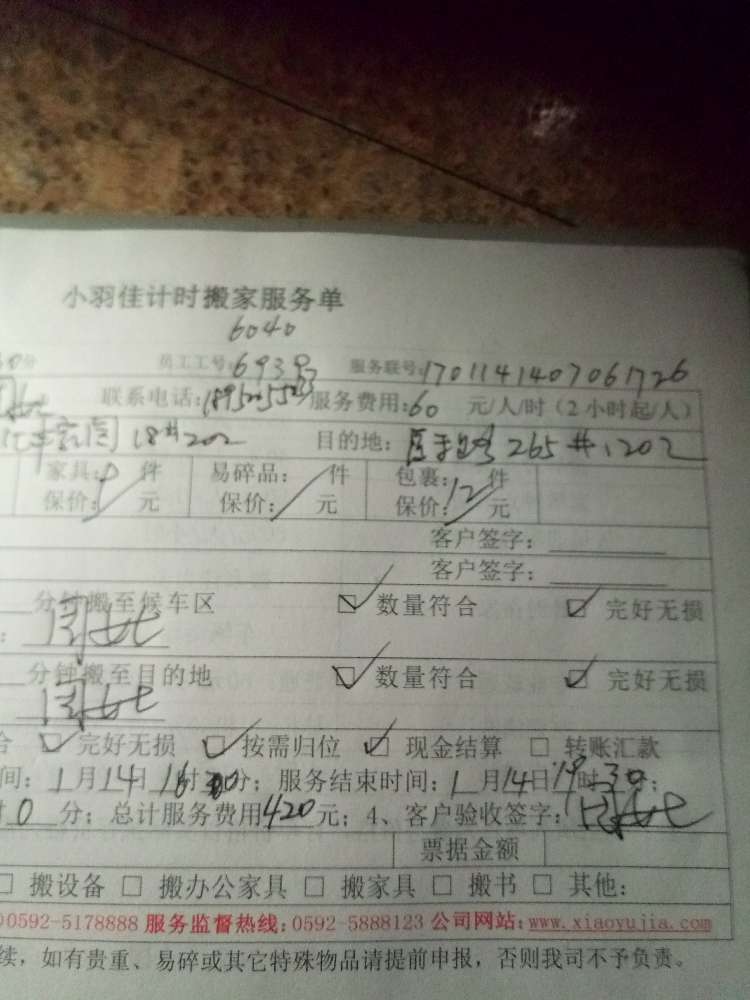 小羽佳计时搬家服务单
6040
0分 员工工号:693号 服务联号:1701141407061726
联系电话: 服务费用:60 元/人/时(2小时起/人)
18#202 目的地: 265#1202
家具: 件 易碎品: 件 包裹:12件
保价: 元 保价: 元 保价: 元
客户签字:
客户签字:
分钟搬至候车区 数量符合 完好无损
分钟搬至目的地 数量符合 完好无损
合 完好无损 按需归位 现金结算 转账汇款
间:1月14日16时30分;服务结束时间:1月14日19时30分;
时0分;总计服务费用420元;4、客户验收签字:
票据金额
搬设备 搬办公家具 搬家具 搬书 其他:
0592-5178888 服务监督热线:0592-5888123 公司网站:www.xiaoyujia.com
续,如有贵重、易碎或其它特殊物品请提前申报,否则我司不予负责。